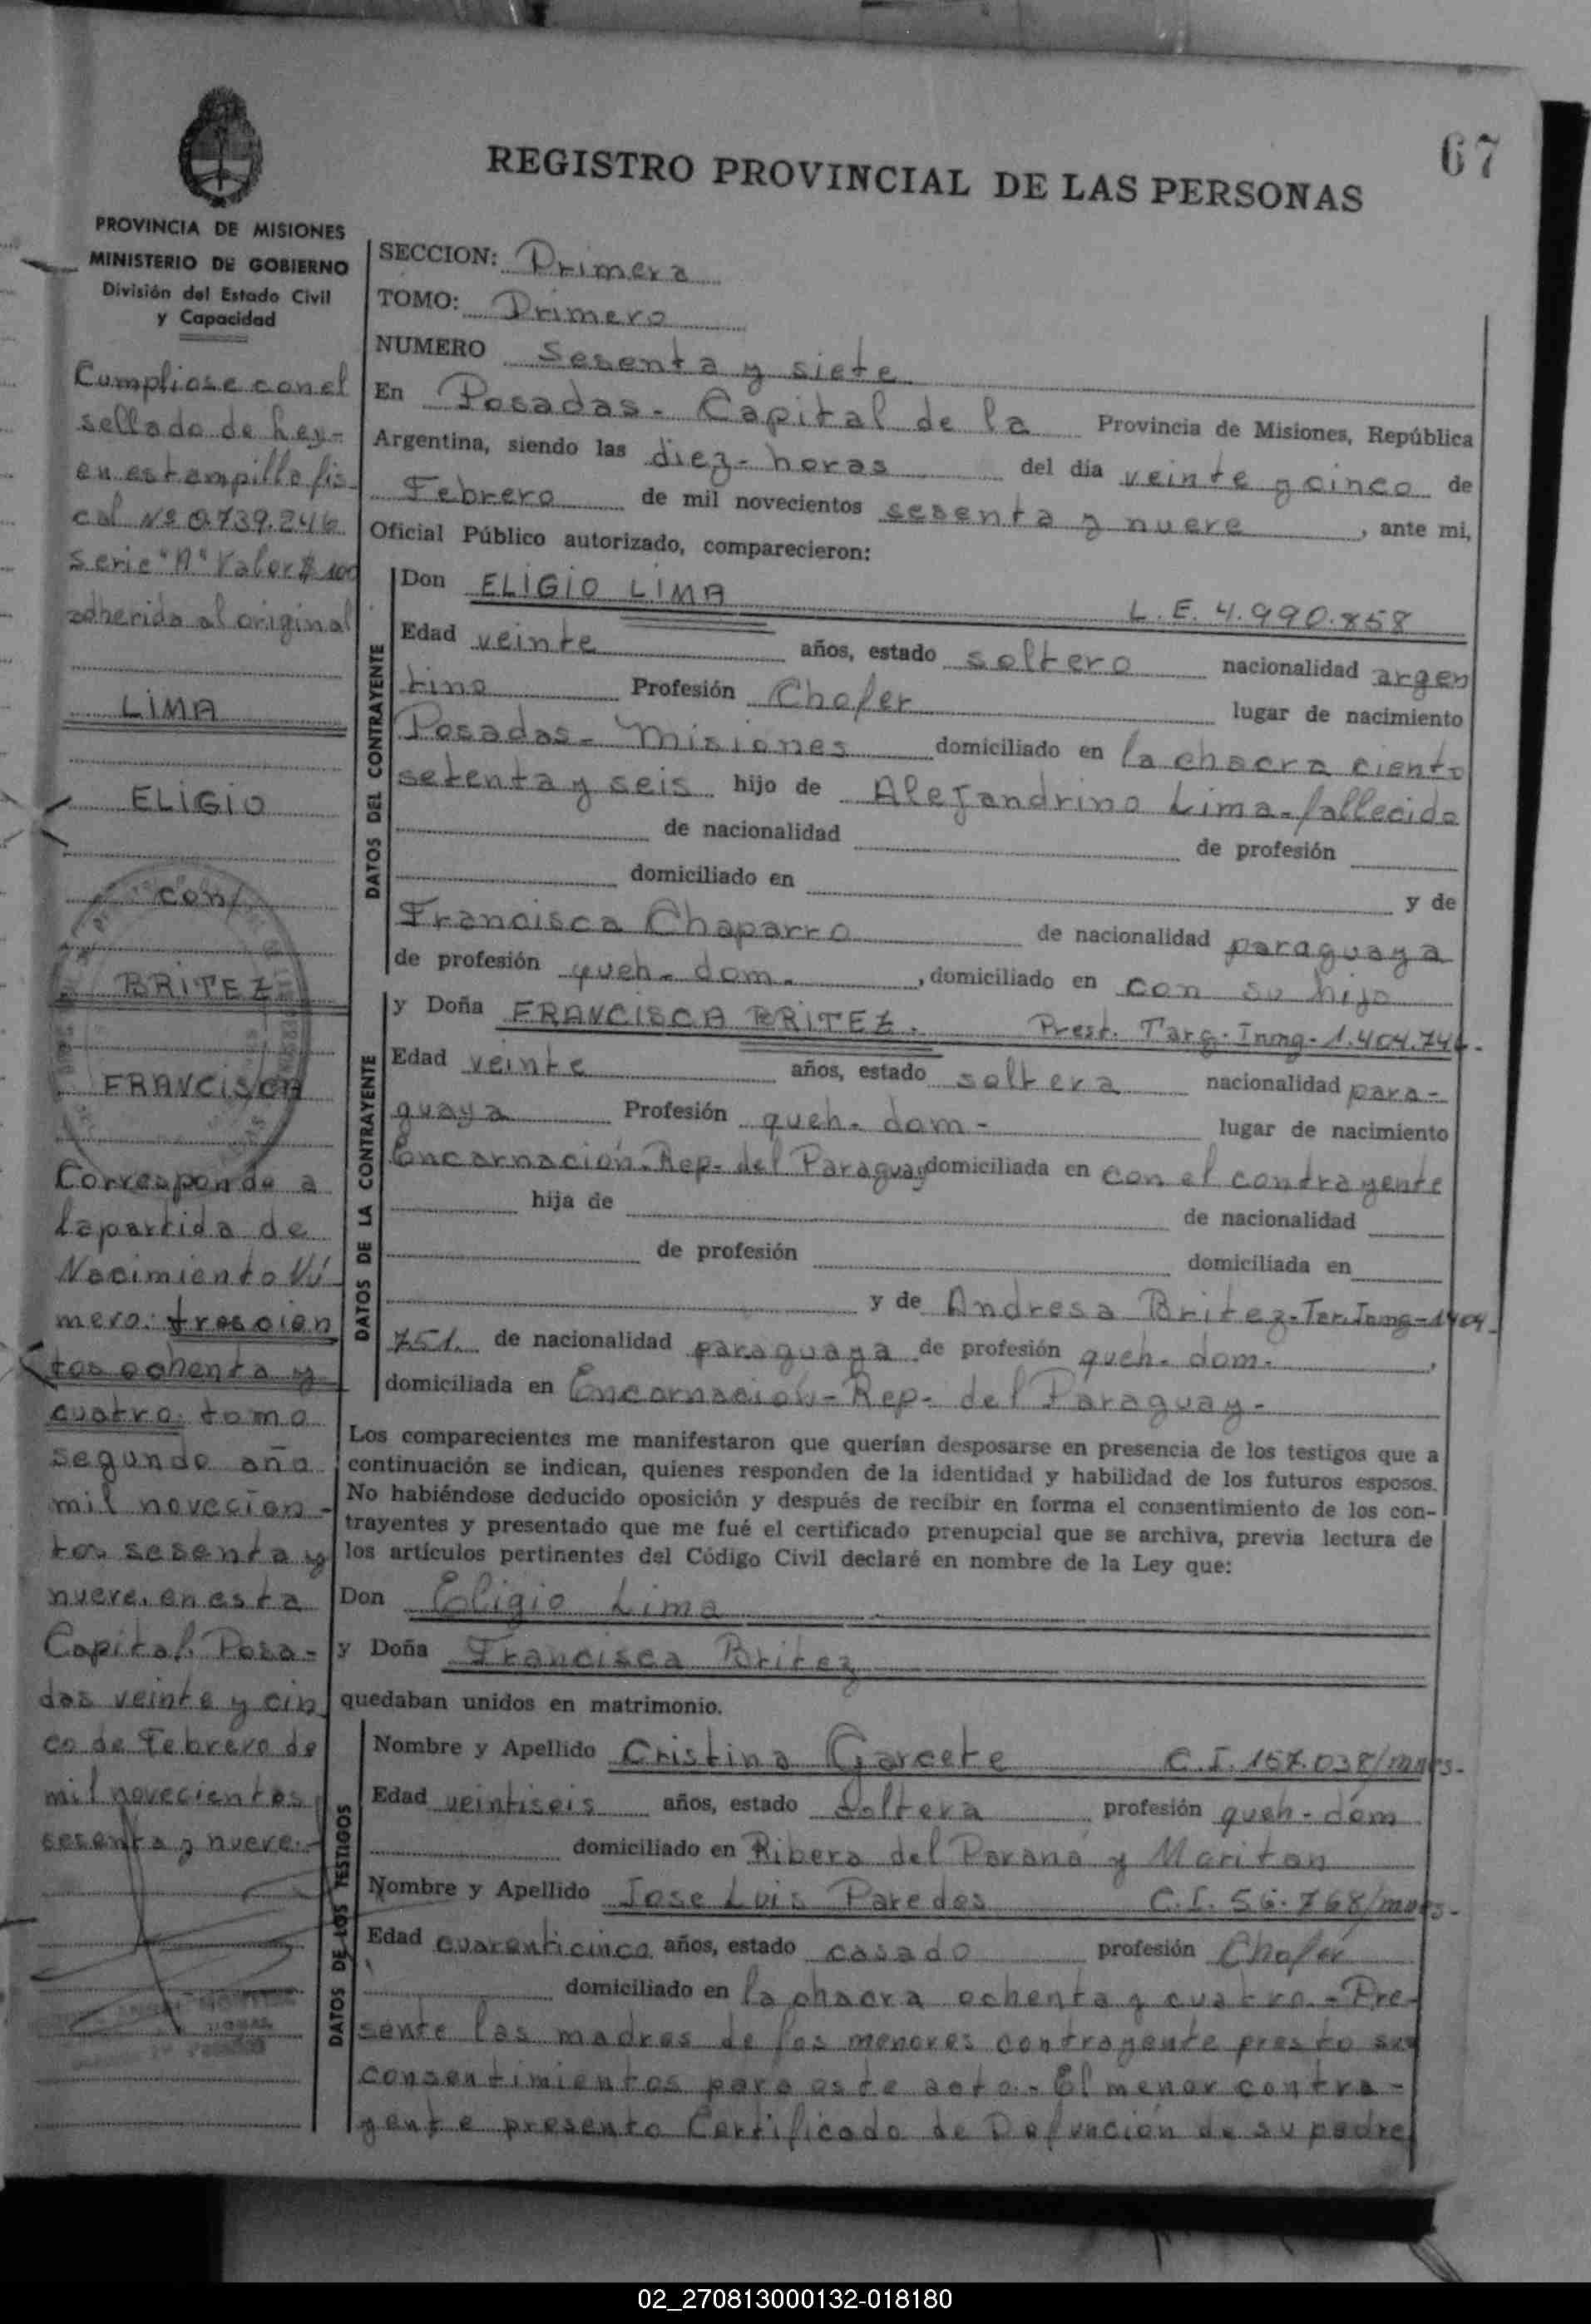 67
REGISTRO PROVINCIAL DE LAS PERSONAS
PROVINCIA DE MISIONES
MINISTERIO DE GOBIERNO
División del Estado Civil
y Capacidad
Cumpliose con el
sellado de Ley-
en estampilla fis-
cal Nº 0.739.246
serie "A" Valor $ 100
adherida al original
LIMA
ELIGIO
con/
BRITEZ
FRANCISCA
Corresponde a
la partida de
Nacimiento Nú
mero: trescien
tos ochenta y
cuatro: tomo
segundo año
mil novecien-
tos sesenta y
nueve, en esta
Capital. Posa-
das veinte y cin
co de Febrero de
mil novecientos
sesenta y nueve.-
SECCION: Primera
TOMO: Primero
NUMERO Sesenta y siete
En Posadas - Capital de la Provincia de Misiones, República
Argentina, siendo las diez - horas del día veinte y cinco de
Febrero de mil novecientos sesenta y nueve, ante mi,
Oficial Público autorizado, comparecieron:
DATOS DEL CONTRAYENTE
Don ELIGIO LIMA L.E. 4.990.858
Edad veinte años, estado soltero nacionalidad argen
tino Profesión Chofer lugar de nacimiento
Posadas - Misiones domiciliado en la chacra ciento
setenta y seis hijo de Alejandrino Lima - fallecido
de nacionalidad de profesión
domiciliado en y de
Francisca Chaparro de nacionalidad paraguaya
de profesión queh - dom. , domiciliado en con su hijo
DATOS DE LA CONTRAYENTE
y Doña FRANCISCA BRITEZ. Prest. Targ. Inmg - 1.404.746.
Edad veinte años, estado soltera nacionalidad para-
guaya Profesión queh - dom - lugar de nacimiento
Encarnación - Rep. del Paraguay domiciliada en con el contrayente
hija de de nacionalidad
de profesión domiciliada en
y de Andresa Britez - Tar. Inmg - 1404.
751. de nacionalidad paraguaya de profesión queh - dom.
domiciliada en Encarnación - Rep - del Paraguay -
Los comparecientes me manifestaron que querían desposarse en presencia de los testigos que a
continuación se indican, quienes responden de la identidad y habilidad de los futuros esposos.
No habiéndose deducido oposición y después de recibir en forma el consentimiento de los con-
trayentes y presentado que me fué el certificado prenupcial que se archiva, previa lectura de
los artículos pertinentes del Código Civil declaré en nombre de la Ley que:
Don Eligio Lima
y Doña Francisca Britez
quedaban unidos en matrimonio.
DATOS DE LOS TESTIGOS
Nombre y Apellido Cristina Garcete C.I. 157.038/mnes-
Edad veintiseis años, estado soltera profesión queh - dom
domiciliado en Ribera del Paraná y Maritan
Nombre y Apellido Jose Luis Paredes C.I. 56.768/mnes-
Edad cuarenticinco años, estado casado profesión Chofer
domiciliado en la chacra ochenta y cuatro. - Pre-
sente las madres de los menores contrayente presto sus
consentimientos para este acto. - El menor contra-
yente presento Certificado de Defunción de su padre
02_270813000132-018180